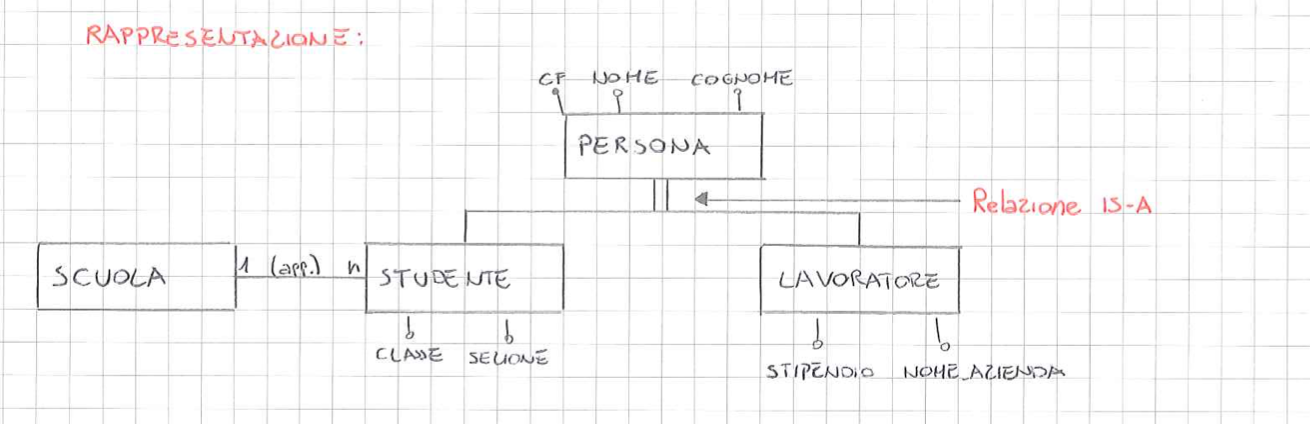 RAPPRESENTAZIONE:
CF NOME COGNOME
PERSONA
Relazione IS-A
SCUOLA 1 (app.) n STUDENTE LAVORATORE
CLASSE SEZIONE
STIPENDIO NOME_AZIENDA